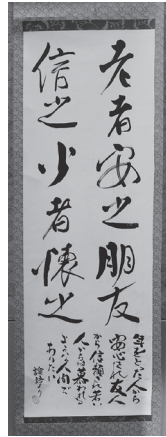 老者安之朋友
信之少者懐之
年をとった人から
安心され友人
から信頼され若い
人からは慕われる
ような人間で
ありたい
論語より